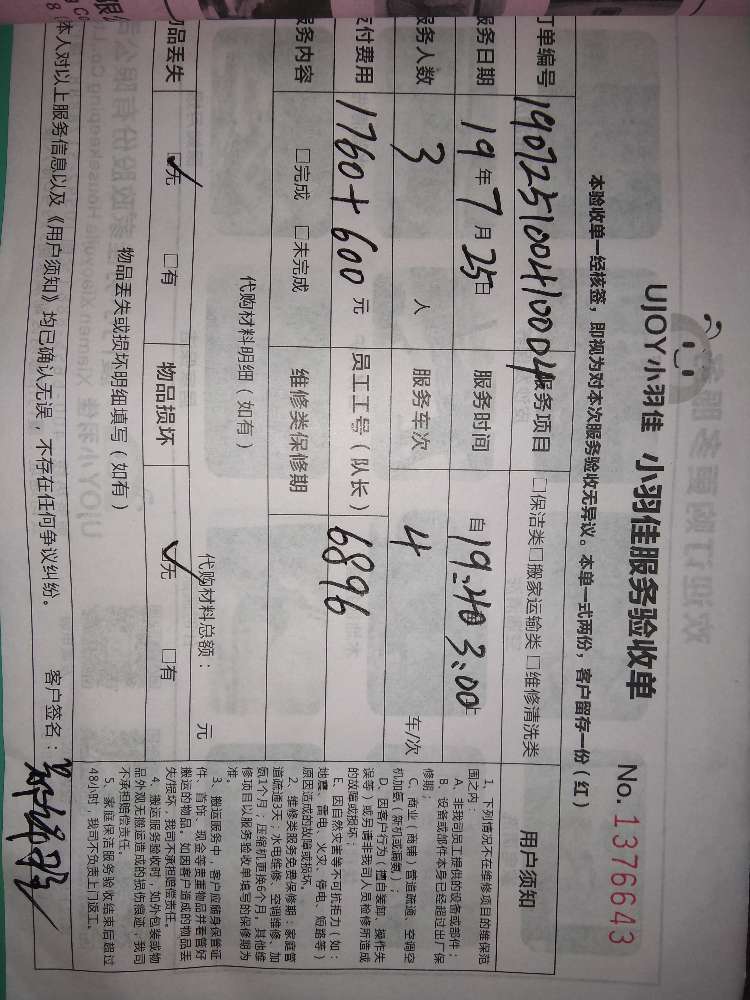 UJOY小羽佳 小羽佳服务验收单
No. 1376643
本验收单一经核签，即视为对本次服务验收无异议。本单一式两份，客户留存一份（红）
订单编号 190725100410004 服务项目 □保洁类□搬家运输类 □维修清洗类
服务日期 19年7月25日 服务时间 自19:40 3:00止
服务人数 3 人 服务车次 4 车/次
支付费用 1760+600 元 员工工号（队长） 6896
服务内容 □完成 □未完成 维修类保修期
代购材料明细（如有） 代购材料总额： 元
物品丢失 ☑无 □有 物品损坏 ☑无 □有
物品丢失或损坏明细填写（如有）
本人对以上服务信息以及《用户须知》均已确认无误，不存在任何争议纠纷。 客户签名：
用户须知
1、下列情况不在维修项目的维保范
围之内：
A、非我司员工提供的设备或部件；
B、设备或部件本身已经超过出厂保
修期；
C、商业（商铺）管道疏通、空调空
机加氨（新机或漏氨）；
D、因客户行为（擅自装卸、操作失
误等）或另请非我司人员检修所造成
的故障或损坏；
E、因自然灾害等不可抗拒力（如：
地震、雷击、水灾、停电、短路等）
原因造成的故障或损坏。
2、维修类服务免费保修期：家庭管
道疏通3天；水电维修、空调维修、加
氨1个月；压缩机更换6个月，其他维
修项目以服务验收单填写的保修期为
准。
3、搬运服务中，客户应随身保管证
件、首饰、现金等贵重物品并看管好
搬运的物品，如因客户造成的物品丢
失/损坏，我司不承担赔偿责任。
4、搬运服务验收时，如外包装或物
品外观无搬运造成的损伤痕迹，我司
不承担赔偿责任。
5、家庭保洁服务验收结束后超过
48小时，我司不负责上门返工。